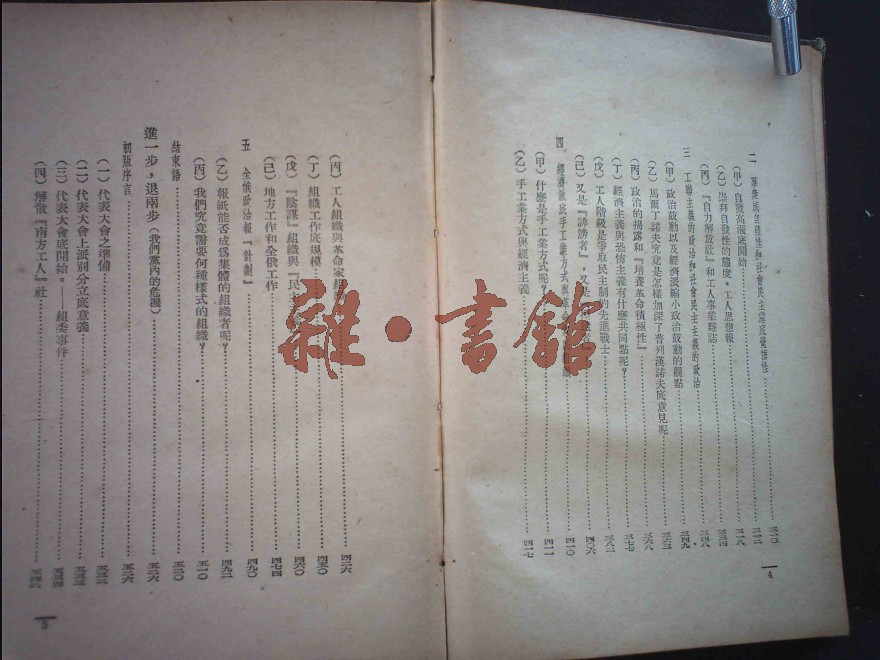 二 羣衆底自發性和社會民主黨底覺悟性……三一〇
(甲) 自發高漲底開始……三一二
(乙) 崇拜自發性的態度。工人思想報……三一八
(丙) 『自力解放社』和工人事業雜誌……三三四
三 工聯主義的政治和社會民主主義的政治……三四九
(甲) 政治鼓動以及經濟派縮小政治鼓動的觀點
(乙) 馬爾丁諾夫究竟是怎樣加深了普列漢諾夫底意見呢……三六三
(丙) 政治的揭露和『培養革命積極性』……三六八
(丁) 經濟主義與恐怖主義有什麽共同點呢?……三七七
(戊) 工人階級是爭取民主制的先進戰士……三八二
(己) 又是『誹謗者』,又
四 經濟派底手工業方式與革命……四一〇
(甲) 什麽是手工業方式呢?……四一一
(乙) 手工業方式與經濟主義……四一七
4
(丙) 工人組織與革命家組織……四二六
(丁) 組織工作底規模……四五〇
(戊) 『陰謀』組織與『民主……四六〇
(己) 地方工作和全俄工作……四七四
五 全俄政治報『計劃』……四九〇
(乙) 報紙能否成爲集體的組織者呢?……四九二
(丙) 我們究竟需要何種樣式的組織?……五一〇
結束語……五二〇
進一步,退兩步(我們黨內的危機)……五二六
初版序言……五二六
(一) 代表大會之準備……五三二
(二) 代表大會上派別分立底意義……五三三
(三) 代表大會底開始。——組委事件
(四) 解散『南方工人』社
5
雜·書館